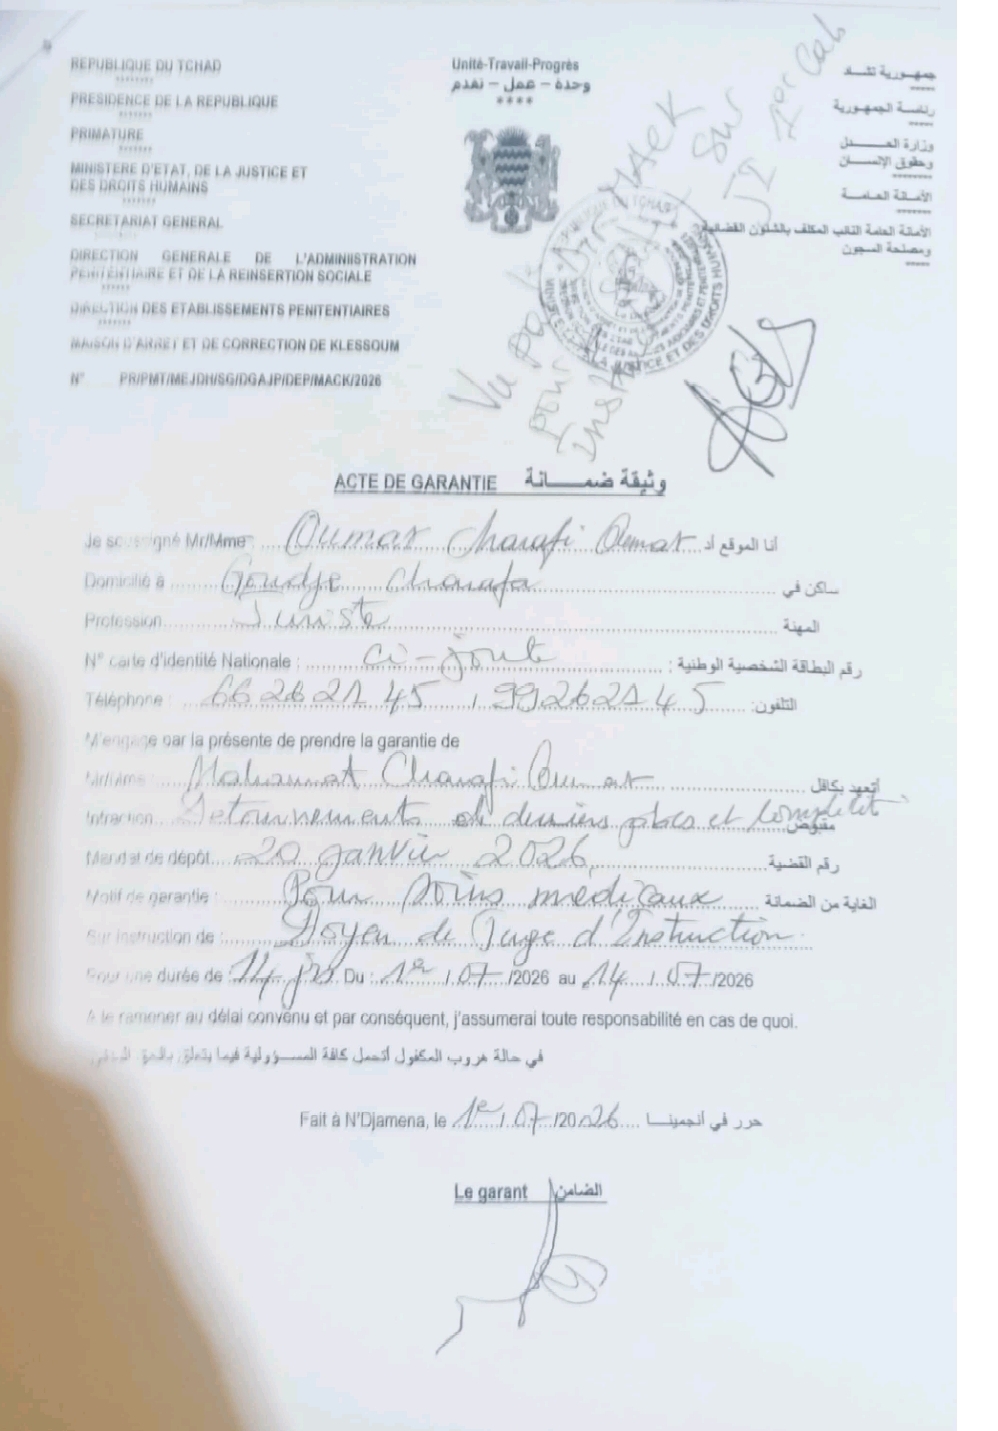 REPUBLIQUE DU TCHAD
*******
PRESIDENCE DE LA REPUBLIQUE
*******
PRIMATURE
*******
MINISTERE D'ETAT, DE LA JUSTICE ET
DES DROITS HUMAINS
SECRETARIAT GENERAL
DIRECTION GENERALE DE L'ADMINISTRATION
PENITENTIAIRE ET DE LA REINSERTION SOCIALE
*******
DIRECTION DES ETABLISSEMENTS PENITENTIAIRES
*******
MAISON D'ARRET ET DE CORRECTION DE KLESSOUM
N° PR/PMT/MEJDH/SG/DGAJP/DEP/MACK/2026
Unité-Travail-Progrès
وحدة – عمل – تقدم
****
جمهورية تشاد
*****
رئاسة الجمهورية
*****
وزارة العدل
وحقوق الإنسان
*******
الأمانة العامة
*****
الأمانة العامة النائب المكلف بالشئون القضائية
ومصلحة السجون
*****
Vu
pour
MACK
sur
1er Cab
ACTE DE GARANTIE وثيقة ضمانة
Je soussigné Mr/Mme Oumar Charafi Oumar أنا الموقع أد
Domicilié à Goudje Charafa ساكن في
Profession Juriste المهنة
N° carte d'identité Nationale : ci-joute رقم البطاقة الشخصية الوطنية :
Téléphone : 66262145 / 99262145 التلفون:
M'engage par la présente de prendre la garantie de
Mr/Mme Mahamat Charafi Oumar أتعهد بكافل
Infraction Detournements de deniers plbcs et complicité مقبوض
Mandat de dépôt 20 janvier 2026 رقم القضية
Motif de garantie : Pour soins medicaux الغاية من الضمانة
Sur instruction de : Doyen de Juge d'Instruction
Pour une durée de 14 jrs Du : 1er/07/2026 au 14/07/2026
A le ramener au délai convenu et par conséquent, j'assumerai toute responsabilité en cas de quoi.
في حالة هروب المكفول أتحمل كافة المسؤولية فيما يتعلق بالحق
Fait à N'Djamena, le 1er/07/2026 حرر في أنجمينا
Le garant الضامن